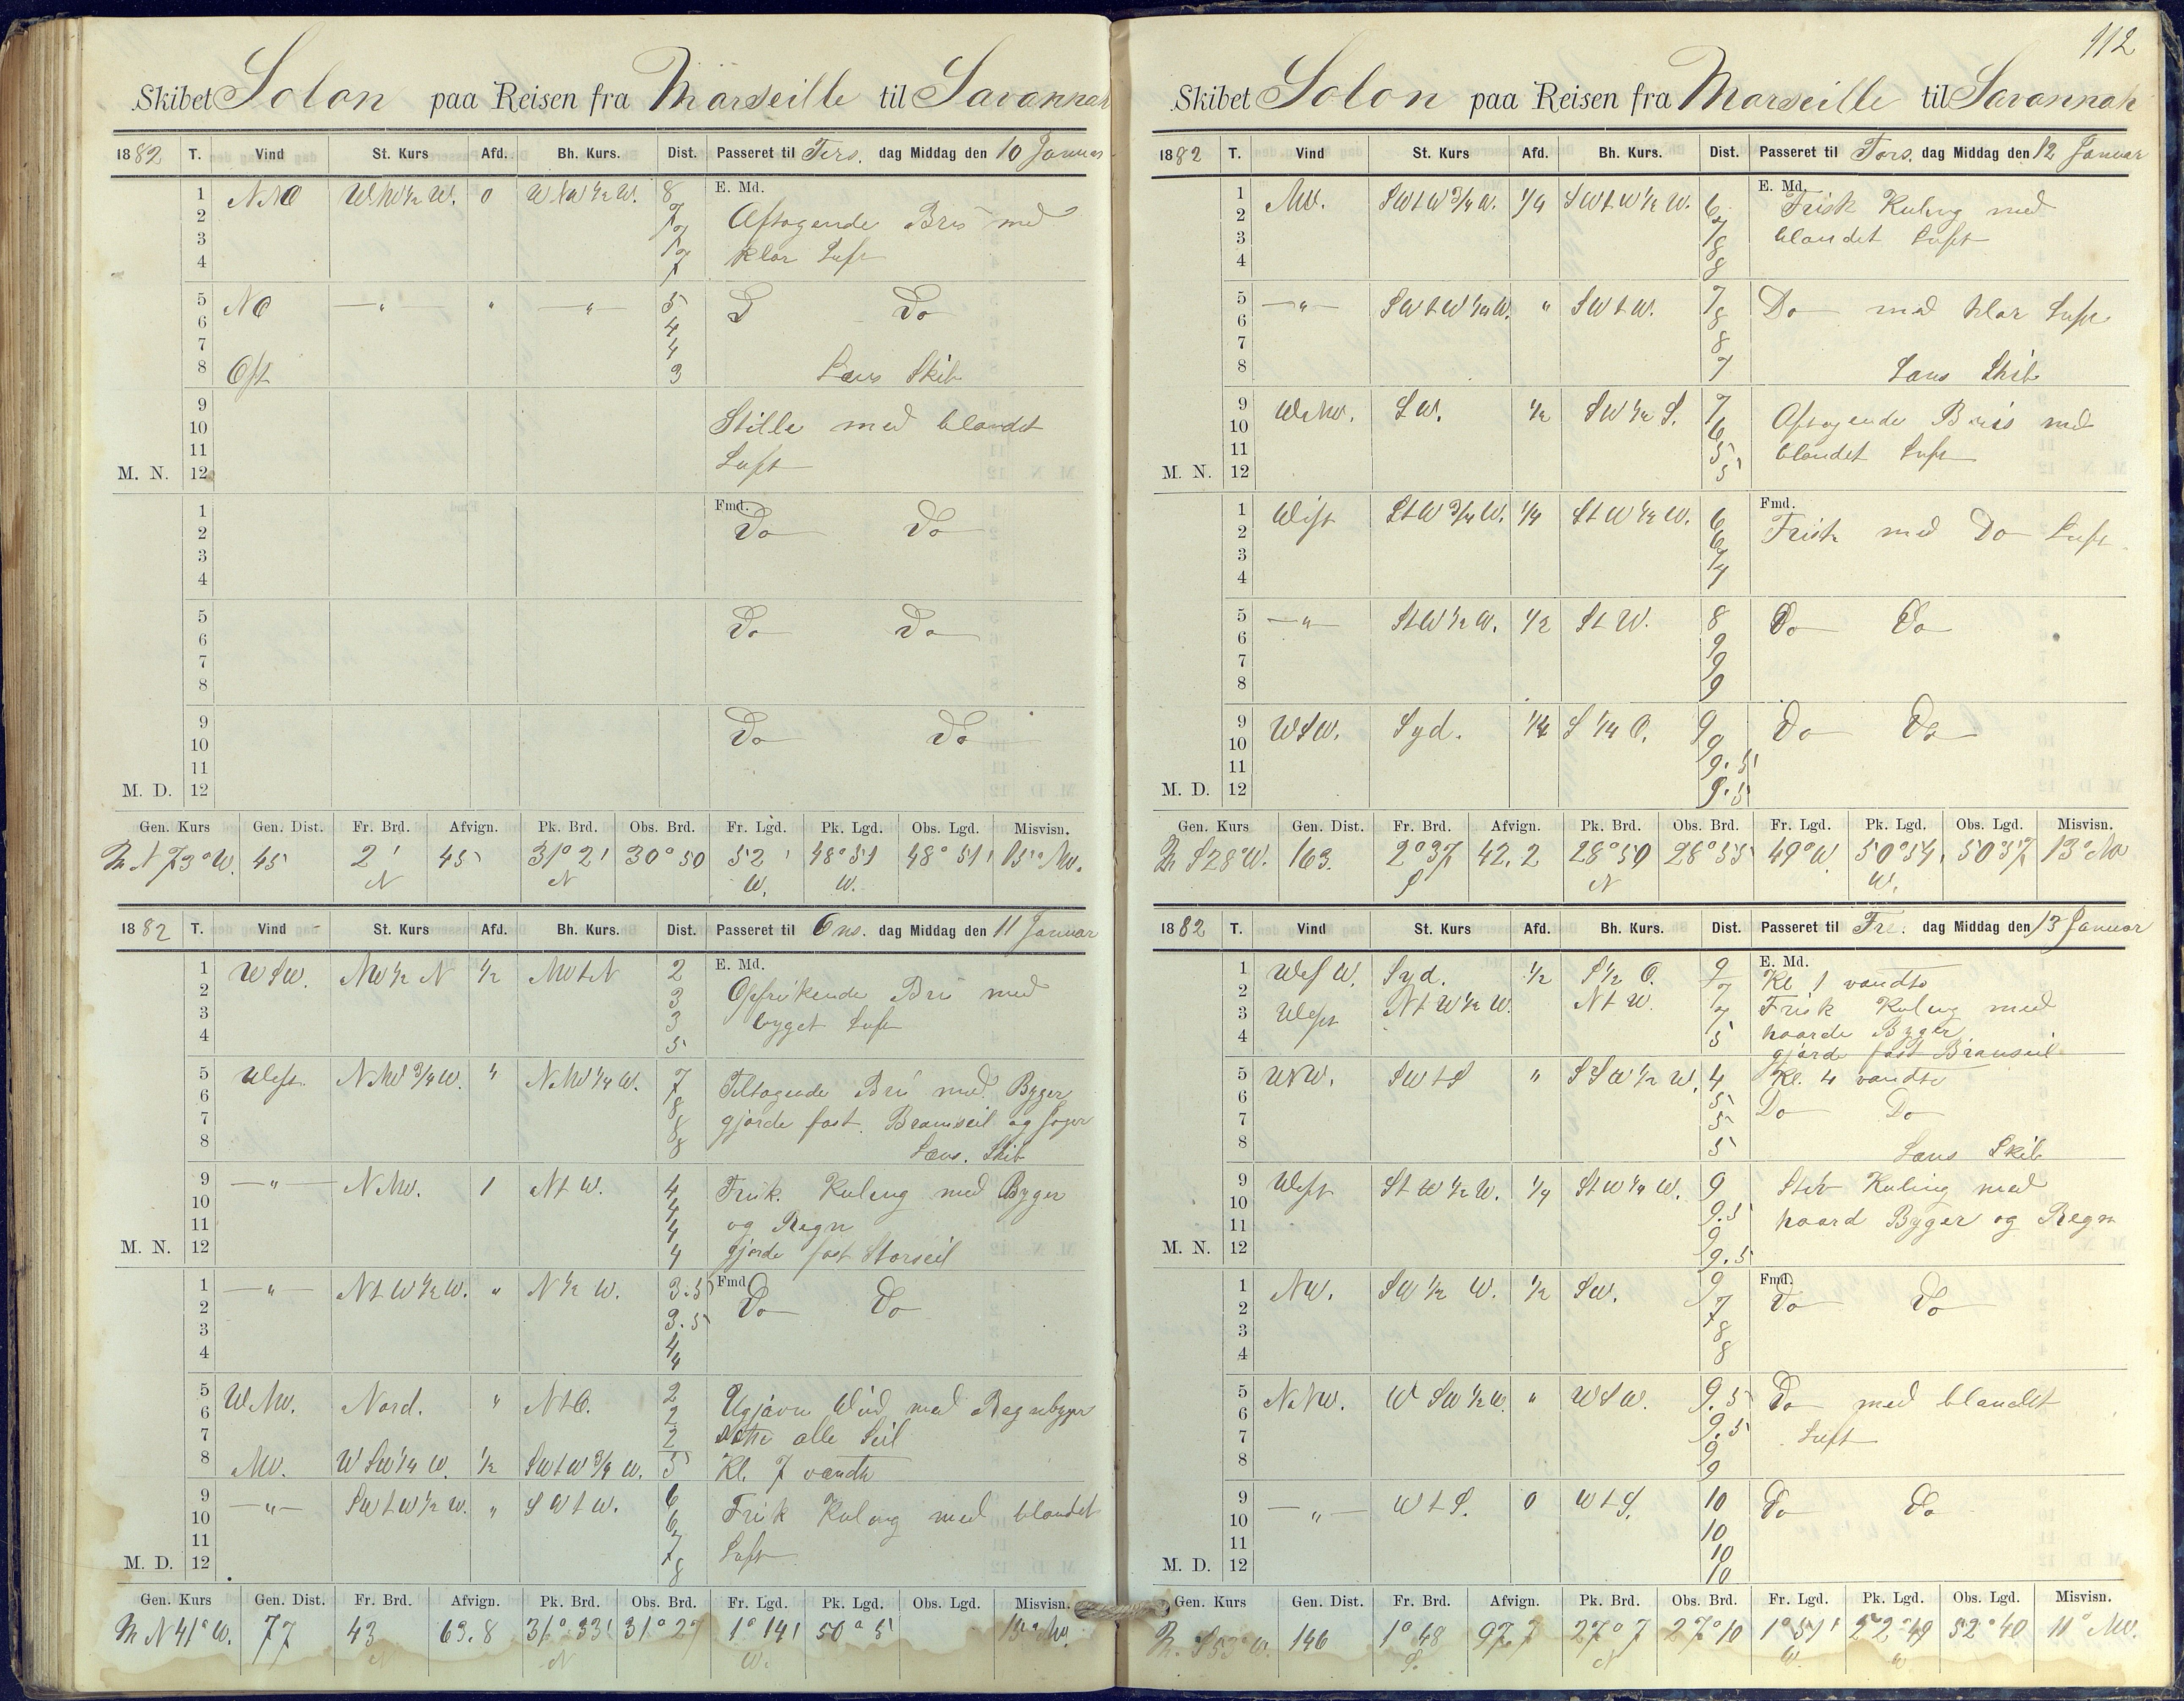 112
Skibet Solon paa Reisen fra Marseille til Savannah
1882 T. Vind St. Kurs Afd. Bh. Kurs. Dist. Passeret til Tirs. dag Middag den 10 Januar
1 NNO WNW½W. 0 WNW½W. 8 E. Md.
2 7 Aftagende Bris med
3 7 klar Luft
4 7
5 NO —"— " —"— 5 D Do
6 4
7 4
8 Ost 3 Læns Skib
9 Stille med blandet
10
11 Luft
M. N. 12
1 Fmd.
2 Do Do
3
4
5
6 Do Do
7
8
9
10 Do Do
11
M. D. 12
Gen. Kurs Gen. Dist. Fr. Brd. Afvign. Pk. Brd. Obs. Brd. Fr. Lgd. Pk. Lgd. Obs. Lgd. Misvisn.
N 73° W. 45 2' 45 31° 2' 30° 50 52' 48° 51 48° 51' 15° NW.
N N W. W.
1882 T. Vind St. Kurs Afd. Bh. Kurs. Dist. Passeret til Ons. dag Middag den 11 Januar
1 WSW. NW½N ½ NWtN 2 E. Md.
2 3 Opfriskende Bris med
3 3 byget Luft
4 5
5 West. NNW¾W. " NNW¼W. 7 Tiltagende Bris med Byger
6 8
7 8 gjorde fast Bramseil og Jager
8 8 Læns. Skib
9 —"— NNW. 1 NtW. 4 Frisk Kuling med Byger
10 4
11 4 og Regn
M. N. 12 4 gjorde fast Storseil
1 —"— NtW½W. " N½W. 3.5 Fmd.
2 3.5 Do Do
3 4
4 4
5 WNW. Nord. " NtO. 2 Ugjævn Vind med Regnbyger
6 2
7 2 satte alle Seil
8 NW. WSW¼W. ½ SWtW¾W. 5 Kl. 7 vendte
9 —"— SWtW½W. " SWtW. 6 Frisk Kuling med blandet
10 6
11 7 Luft
M. D. 12 8
Gen. Kurs Gen. Dist. Fr. Brd. Afvign. Pk. Brd. Obs. Brd. Fr. Lgd. Pk. Lgd. Obs. Lgd. Misvisn.
N 41° W. 77 43 63.8 31° 33' 31° 27 1° 14' 50° 5' 15° NW.
N N W.
Skibet Solon paa Reisen fra Marseille til Savannah
1882 T. Vind St. Kurs Afd. Bh. Kurs. Dist. Passeret til Tors. dag Middag den 12 Januar
1 NW. SWtW¾W. ¼ SWtW½W. 6 E. Md.
2 7 Frisk Kuling med
3 8 blandet Luft
4 8
5 —"— SWtW¼W. " SWtW. 7 Do med klar Luft
6 8
7 8
8 7 Læns Skib
9 WNW. SW. ½ SW½S. 7 Aftagende Bris med
10 6
11 5 blandet Luft
M. N. 12 5
1 West StW¾W. ¼ StW½W. 6 Fmd.
2 6 Frisk med Do Luft
3 7
4 7
5 —"— StW½W. ½ StW. 8 Do Do
6 9
7 9
8 9
9 WSW. Syd. ¼ S¼O. 9 Do Do
10 9
11 9.5
M. D. 12 9.5
Gen. Kurs Gen. Dist. Fr. Brd. Afvign. Pk. Brd. Obs. Brd. Fr. Lgd. Pk. Lgd. Obs. Lgd. Misvisn.
S 28° W. 163. 2° 37 42.2 28° 50 28° 55 49° W. 50° 54' 50 37 13° NW
S N W.
1882 T. Vind St. Kurs Afd. Bh. Kurs. Dist. Passeret til Fre. dag Middag den 13 Januar
1 WSW. Syd. ½ S½O. 9 E. Md. Kl 1 vendte
2 West NtW½W. NtW. 7 Frisk Kuling med
3 7 haarde Byger
4 5 gjorde fast Bramseil
5 WNW. SWtS " SSW½W. 4 Kl. 4 vendte
6 5 Do Do
7 5
8 5 Læns Skib
9 West StW½W. ¼ StW¼W. 9 Stiv Kuling med
10 9.5
11 9 haard Byger og Regn
M. N. 12 9.5
1 NW. SW½W. ½ SW. 9 Fmd.
2 7 Do Do
3 8
4 8
5 NNW. WSW½W. " WSW. 9.5 Do med blandet
6 9.5
7 9 Luft
8 9
9 —"— WtS. 0 WtS. 10 Do Do
10 10
11 10
M. D. 12 10
Gen. Kurs Gen. Dist. Fr. Brd. Afvign. Pk. Brd. Obs. Brd. Fr. Lgd. Pk. Lgd. Obs. Lgd. Misvisn.
S 53° W. 146 1° 48 97.7 27° 7 27° 10 1° 51' 52° 49 52° 40 11° NW.
S. N W. W